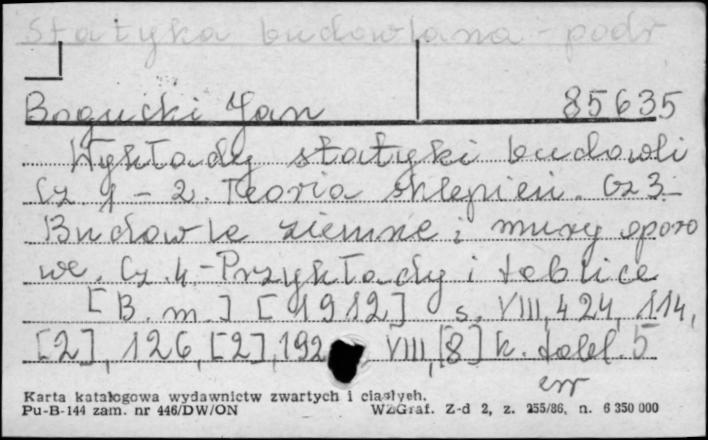 Statyka budowlana - podr
Bogucki Jan 85635
Wykłady statyki budowli
Cz 1 - 2. Teoria sklepień. Cz 3 -
Budowle ziemne i mury oporo
we. Cz. 4. - Przykłady i tablice
[B. m.] [1912] s. VIII, 424, 114,
[2], 126, [2], 192 VIII, [8] k. tabl. 5
err
Karta katalogowa wydawnictw zwartych i ciągłych.
Pu-B-144 zam. nr 446/DW/ON WZGraf. Z-d 2, z. 255/86, n. 6 350 000